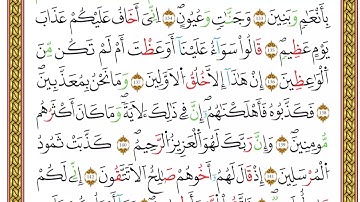 بِأَنْعَٰمٍ وَبَنِينَ ١٣٣ وَجَنَّٰتٍ وَعُيُونٍ ١٣٤ إِنِّىٓ أَخَافُ عَلَيْكُمْ عَذَابَ
يَوْمٍ عَظِيمٍ ١٣٥ قَالُوا۟ سَوَآءٌ عَلَيْنَآ أَوَعَظْتَ أَمْ لَمْ تَكُن مِّنَ
ٱلْوَٰعِظِينَ ١٣٦ إِنْ هَٰذَآ إِلَّا خُلُقُ ٱلْأَوَّلِينَ ١٣٧ وَمَا نَحْنُ بِمُعَذَّبِينَ
١٣٨ فَكَذَّبُوهُ فَأَهْلَكْنَٰهُمْ إِنَّ فِى ذَٰلِكَ لَءَايَةً وَمَا كَانَ أَكْثَرُهُم
مُّؤْمِنِينَ ١٣٩ وَإِنَّ رَبَّكَ لَهُوَ ٱلْعَزِيزُ ٱلرَّحِيمُ ١٤٠ كَذَّبَتْ ثَمُودُ
ٱلْمُرْسَلِينَ ١٤١ إِذْ قَالَ لَهُمْ أَخُوهُمْ صَٰلِحٌ أَلَا تَتَّقُونَ ١٤٢ إِنِّى لَكُمْ